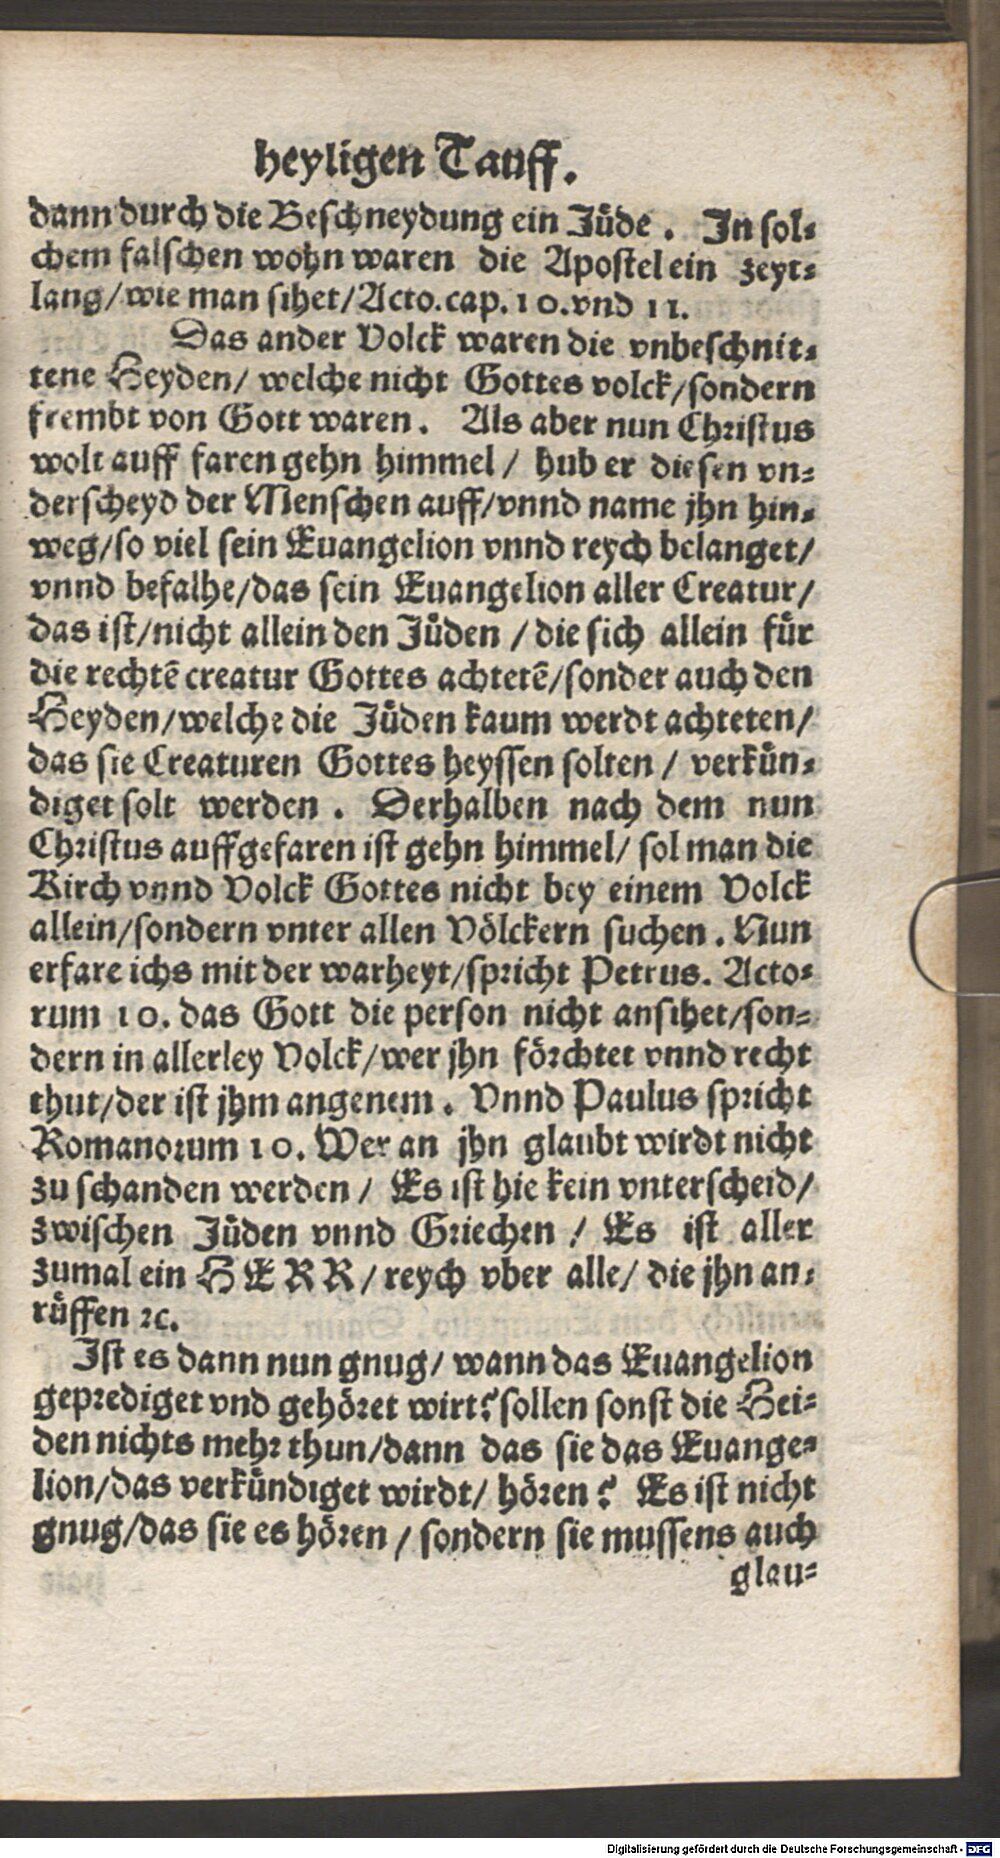 heyligen Tauff.
dann durch die Beschneydung ein Jüde. In sol-
chem falschen wohn waren die Apostel ein zeyt-
lang/wie man sihet/Acto.cap.10.vnd 11.
Das ander Volck waren die vnbeschnit-
tene Heyden/ welche nicht Gottes volck/sondern
frembt von Gott waren. Als aber nun Christus
wolt auff faren gehn himmel/ hub er diesen vn-
derscheyd der Menschen auff/vnnd name jhn hin-
weg/so viel sein Euangelion vnnd reych belanget/
vnnd befalhe/das sein Euangelion aller Creatur/
das ist/nicht allein den Jüden/die sich allein für
die rechtē creatur Gottes achtetē/sonder auch den
Heyden/welche die Jüden kaum werdt achteten/
das sie Creaturen Gottes heyssen solten/ verkün-
diget solt werden. Derhalben nach dem nun
Christus auffgefaren ist gehn himmel/ sol man die
Kirch vnnd Volck Gottes nicht bey einem Volck
allein/sondern vnter allen Völckern suchen. Nun
erfare ichs mit der warheyt/spricht Petrus. Acto-
rum 10. das Gott die person nicht ansihet/son-
dern in allerley Volck/wer jhn förchtet vnnd recht
thut/der ist jhm angenem. Vnnd Paulus spricht
Romanorum 10. Wer an jhn glaubt wirdt nicht
zu schanden werden/ Es ist hie kein vnterscheid/
zwischen Jüden vnnd Griechen/ Es ist aller
zumal ein HERR/reych vber alle/ die jhn an-
rüffen ꝛc.
Ist es dann nun gnug/ wann das Euangelion
geprediget vnd gehöret wirt? sollen sonst die Hei-
den nichts mehr thun/dann das sie das Euange-
lion/das verkündiget wirdt/ hören? Es ist nicht
gnug/das sie es hören/sondern sie mussens auch
glau-
Digitalisierung gefördert durch die Deutsche Forschungsgemeinschaft - DFG